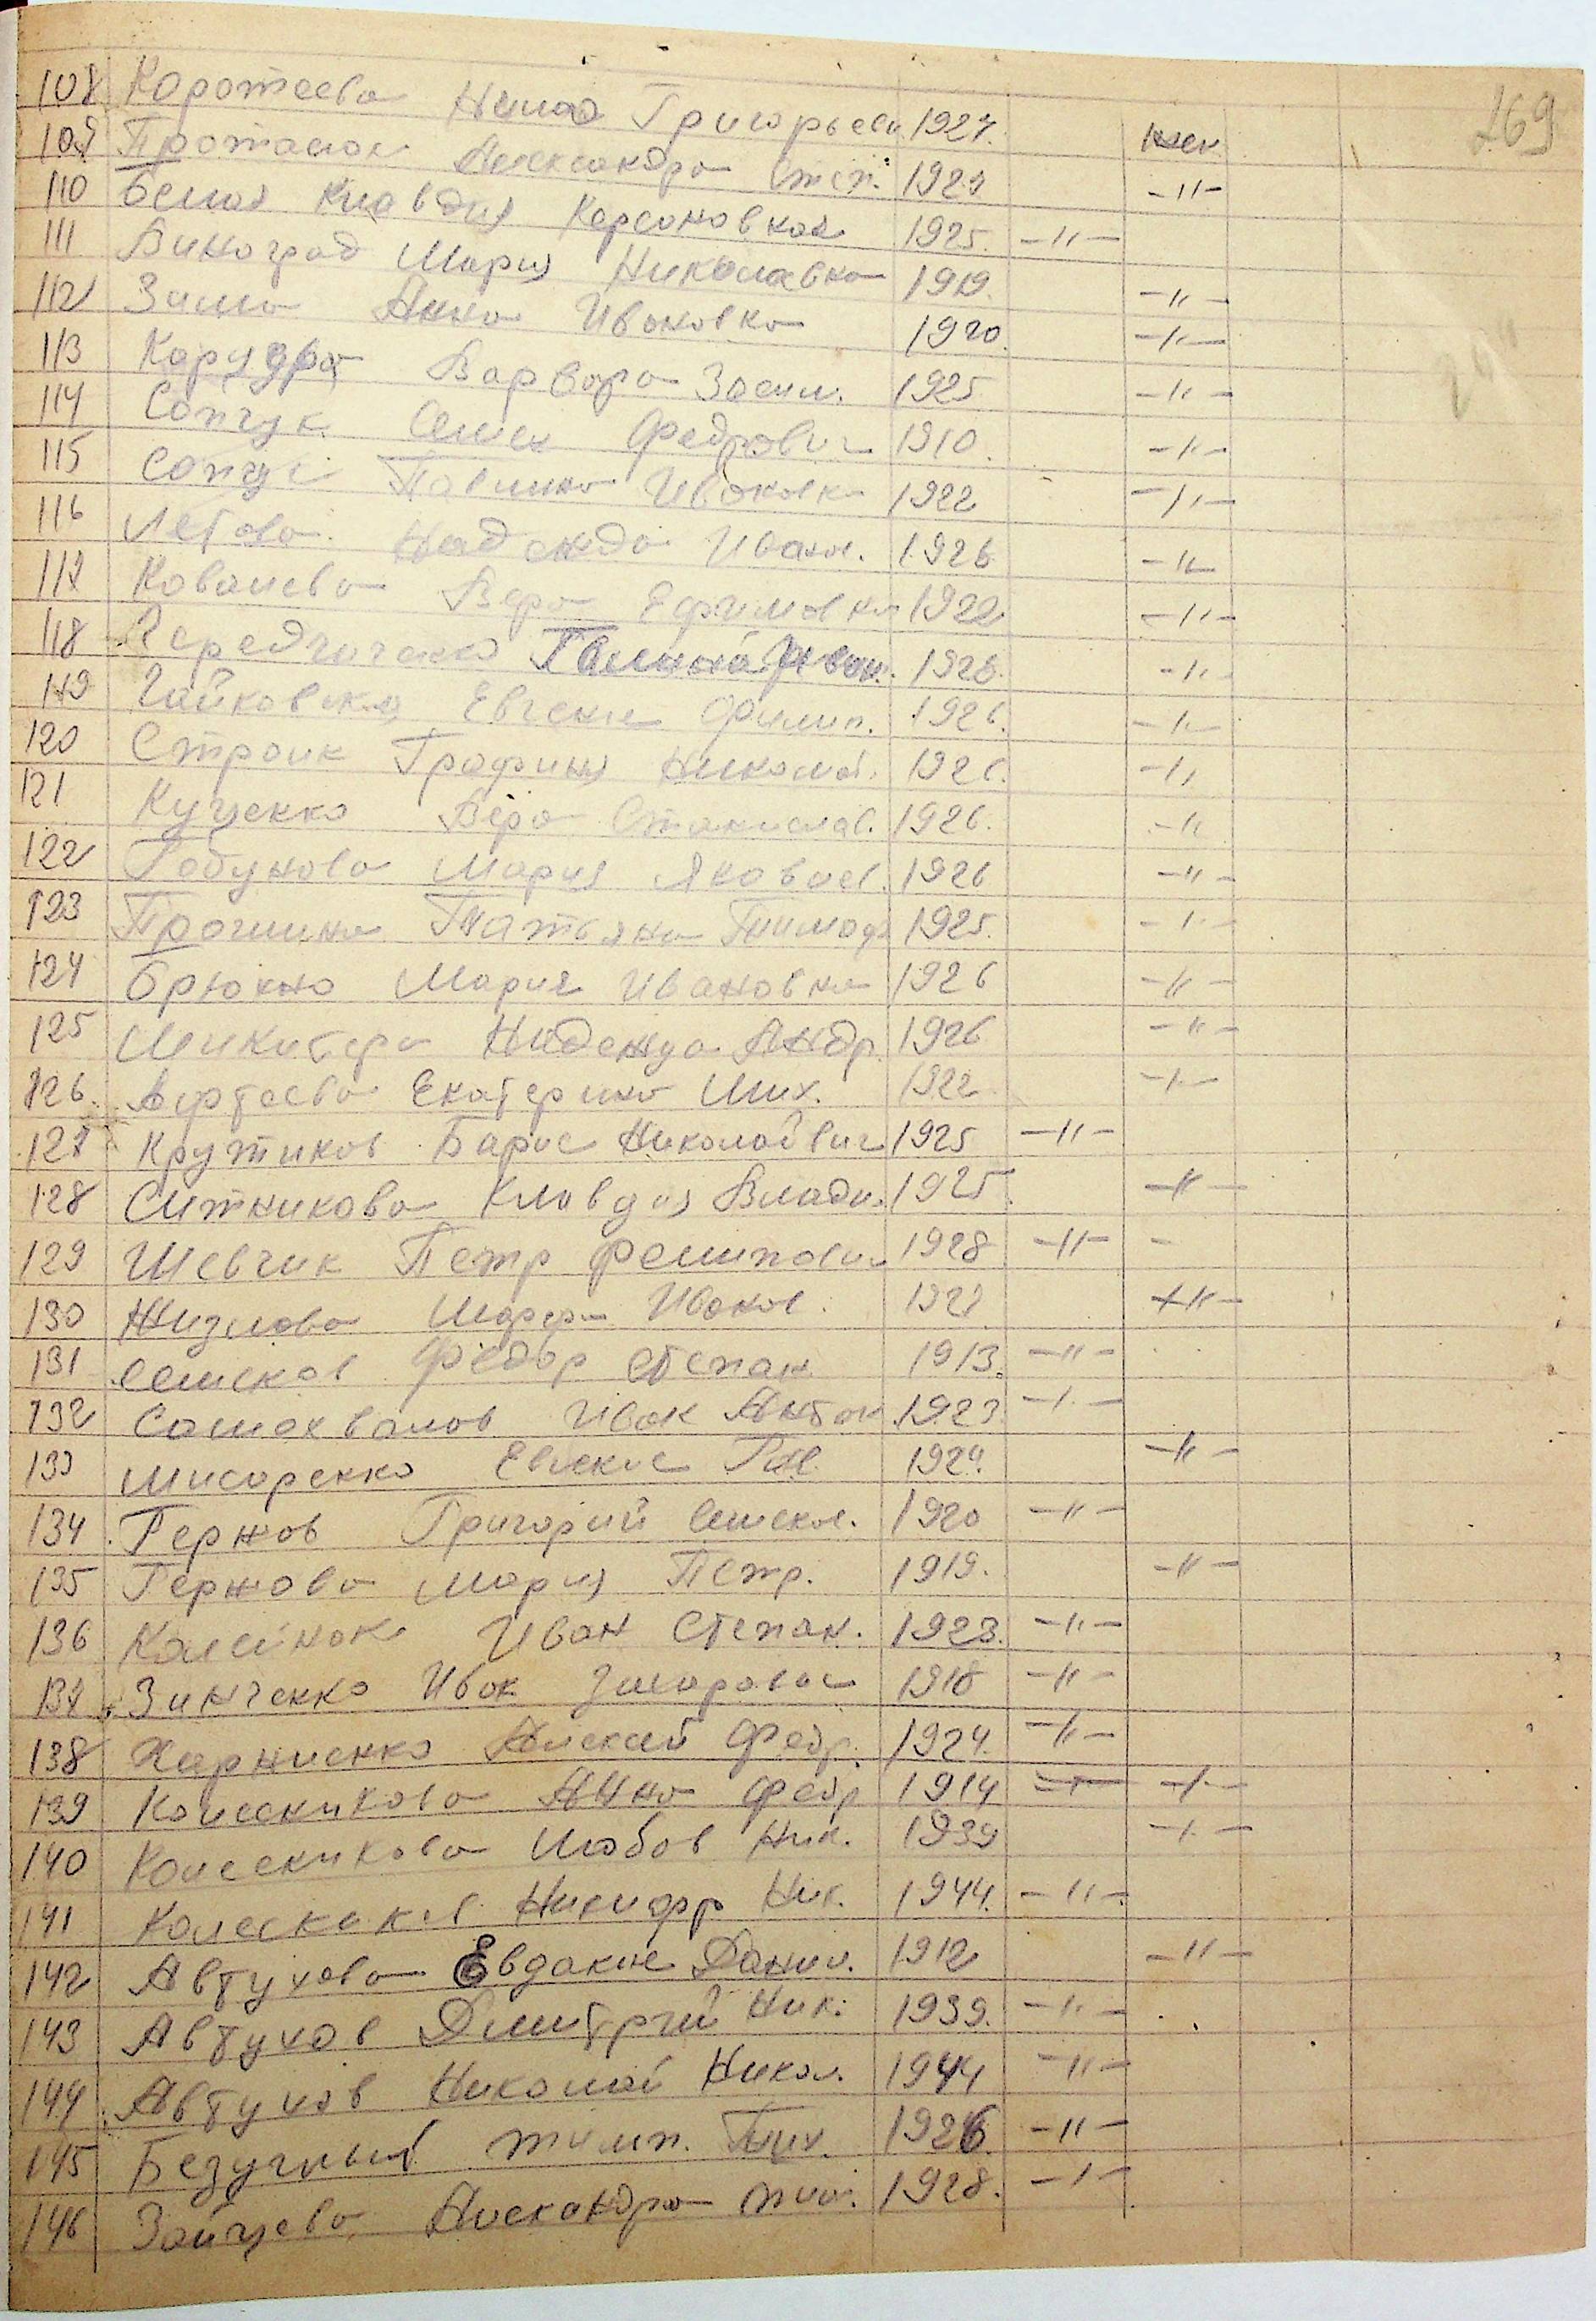 269
108 Коротеева Нина Григорьевн 1927. жен
109 Протасюк Александра Степ. 1921 -〃-
110 Белая Клавдия Карсоновная 1925. -〃-
111 Виноград Мария Николавна 1919. -〃-
112 Зима Анна Ивановна 1920. -〃-
113 Варвара 1925 -〃-
114 Сопчук Семен Федрович 1910. -〃-
115 Сопчук Павлина Ивановна 1922 -〃-
116 Летова Надежда Иван. 1926 -〃-
117 Ковалева Вера Ефимовна 1922. -〃-
118 Галина Иван. 1926. -〃-
119 Чайковская Евгение Филип. 1926. -〃-
120 Строик Графиня Николай. 1926. -〃-
121 Куценко Вера Станислав. 1926. -〃-
122 Годунова Мария Яковлев. 1926 -〃-
123 Прошина Татьяна Тимоф 1925. -〃-
124 Брюхно Мария Ивановна 1926 -〃-
125 Надежда Андр. 1926 -〃-
126 Екатерина Мих. 1922 -〃-
127 Крутиков Барис Николайвич 1925 -〃-
128 Ситникова Клавдия Влади. 1925. -〃-
129 Шевчик Петр Фелипович 1928 -〃- -
130 Жизлова Иванов. -〃-
131 Семенов Федор Степан 1913. -〃-
132 Самохвалов Иван Антон 1923. -〃-
133 Мисоренко Евгение 1924. -〃-
134 Гержов Григорий Семенов. 1920 -〃-
135 Гержова Мария Петр. 1919. -〃-
136 Иван Степан. 1923. -〃-
137 Зинченко Иван Захарович 1918 -〃-
138 Харниенко Алексей Федр. 1924. -〃-
139 Колесникова Анна Федр 1914 -〃-
140 Колесникова Любов Ник. 1939 -〃-
141 Никифр Ник. 1944. -〃-
142 Автухова Евдакие Данил. 1912 -〃-
143 Автухов Дмитрий Ник. 1939. -〃-
144 Автухов Николай Никол. 1944 -〃-
145 Безучный 1926. -〃-
146 Зайцева Александра 1928. -〃-